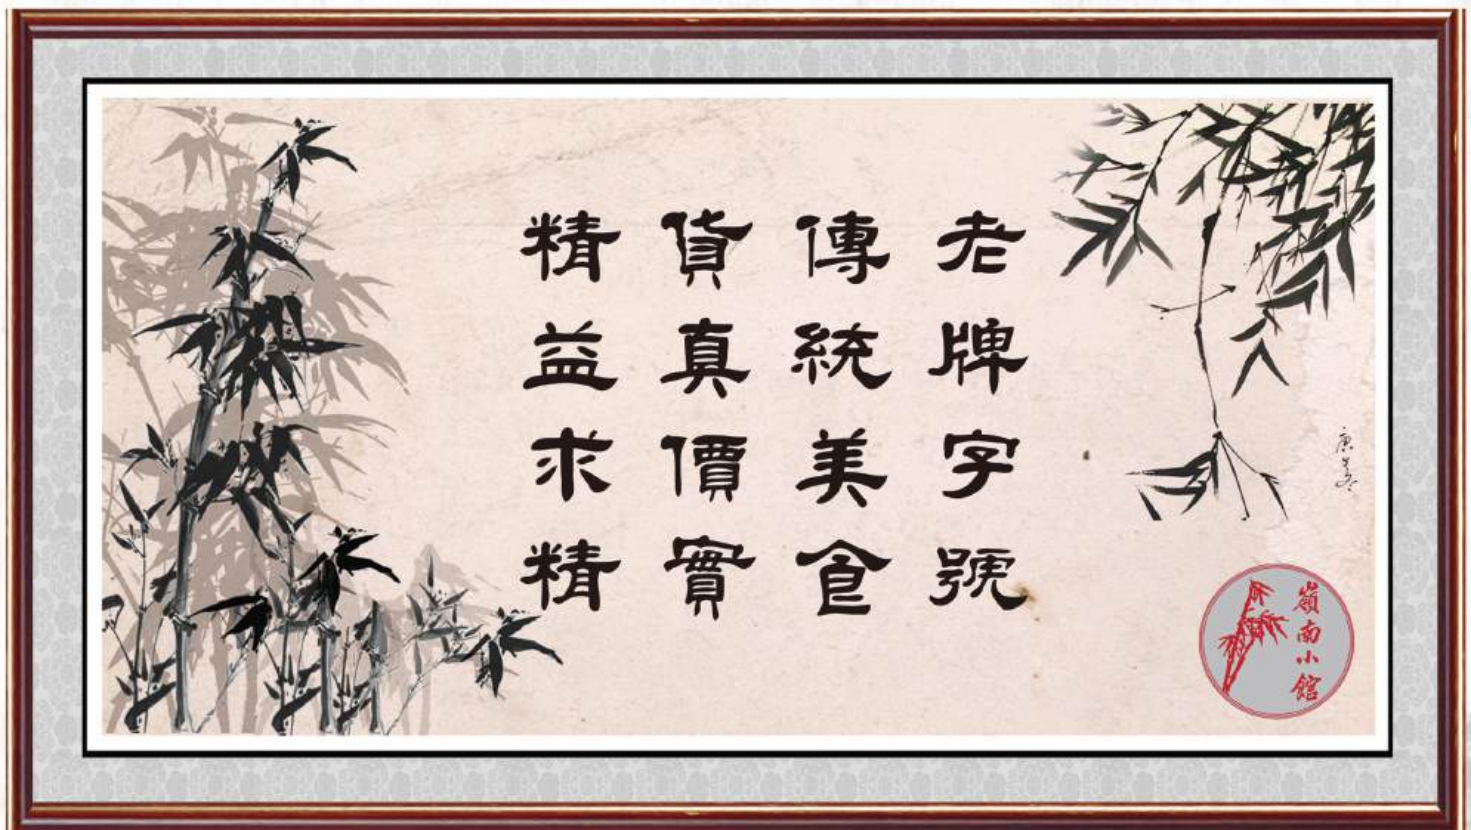 老牌字號
傳統美食
貨真價實
精益求精
嶺南小館